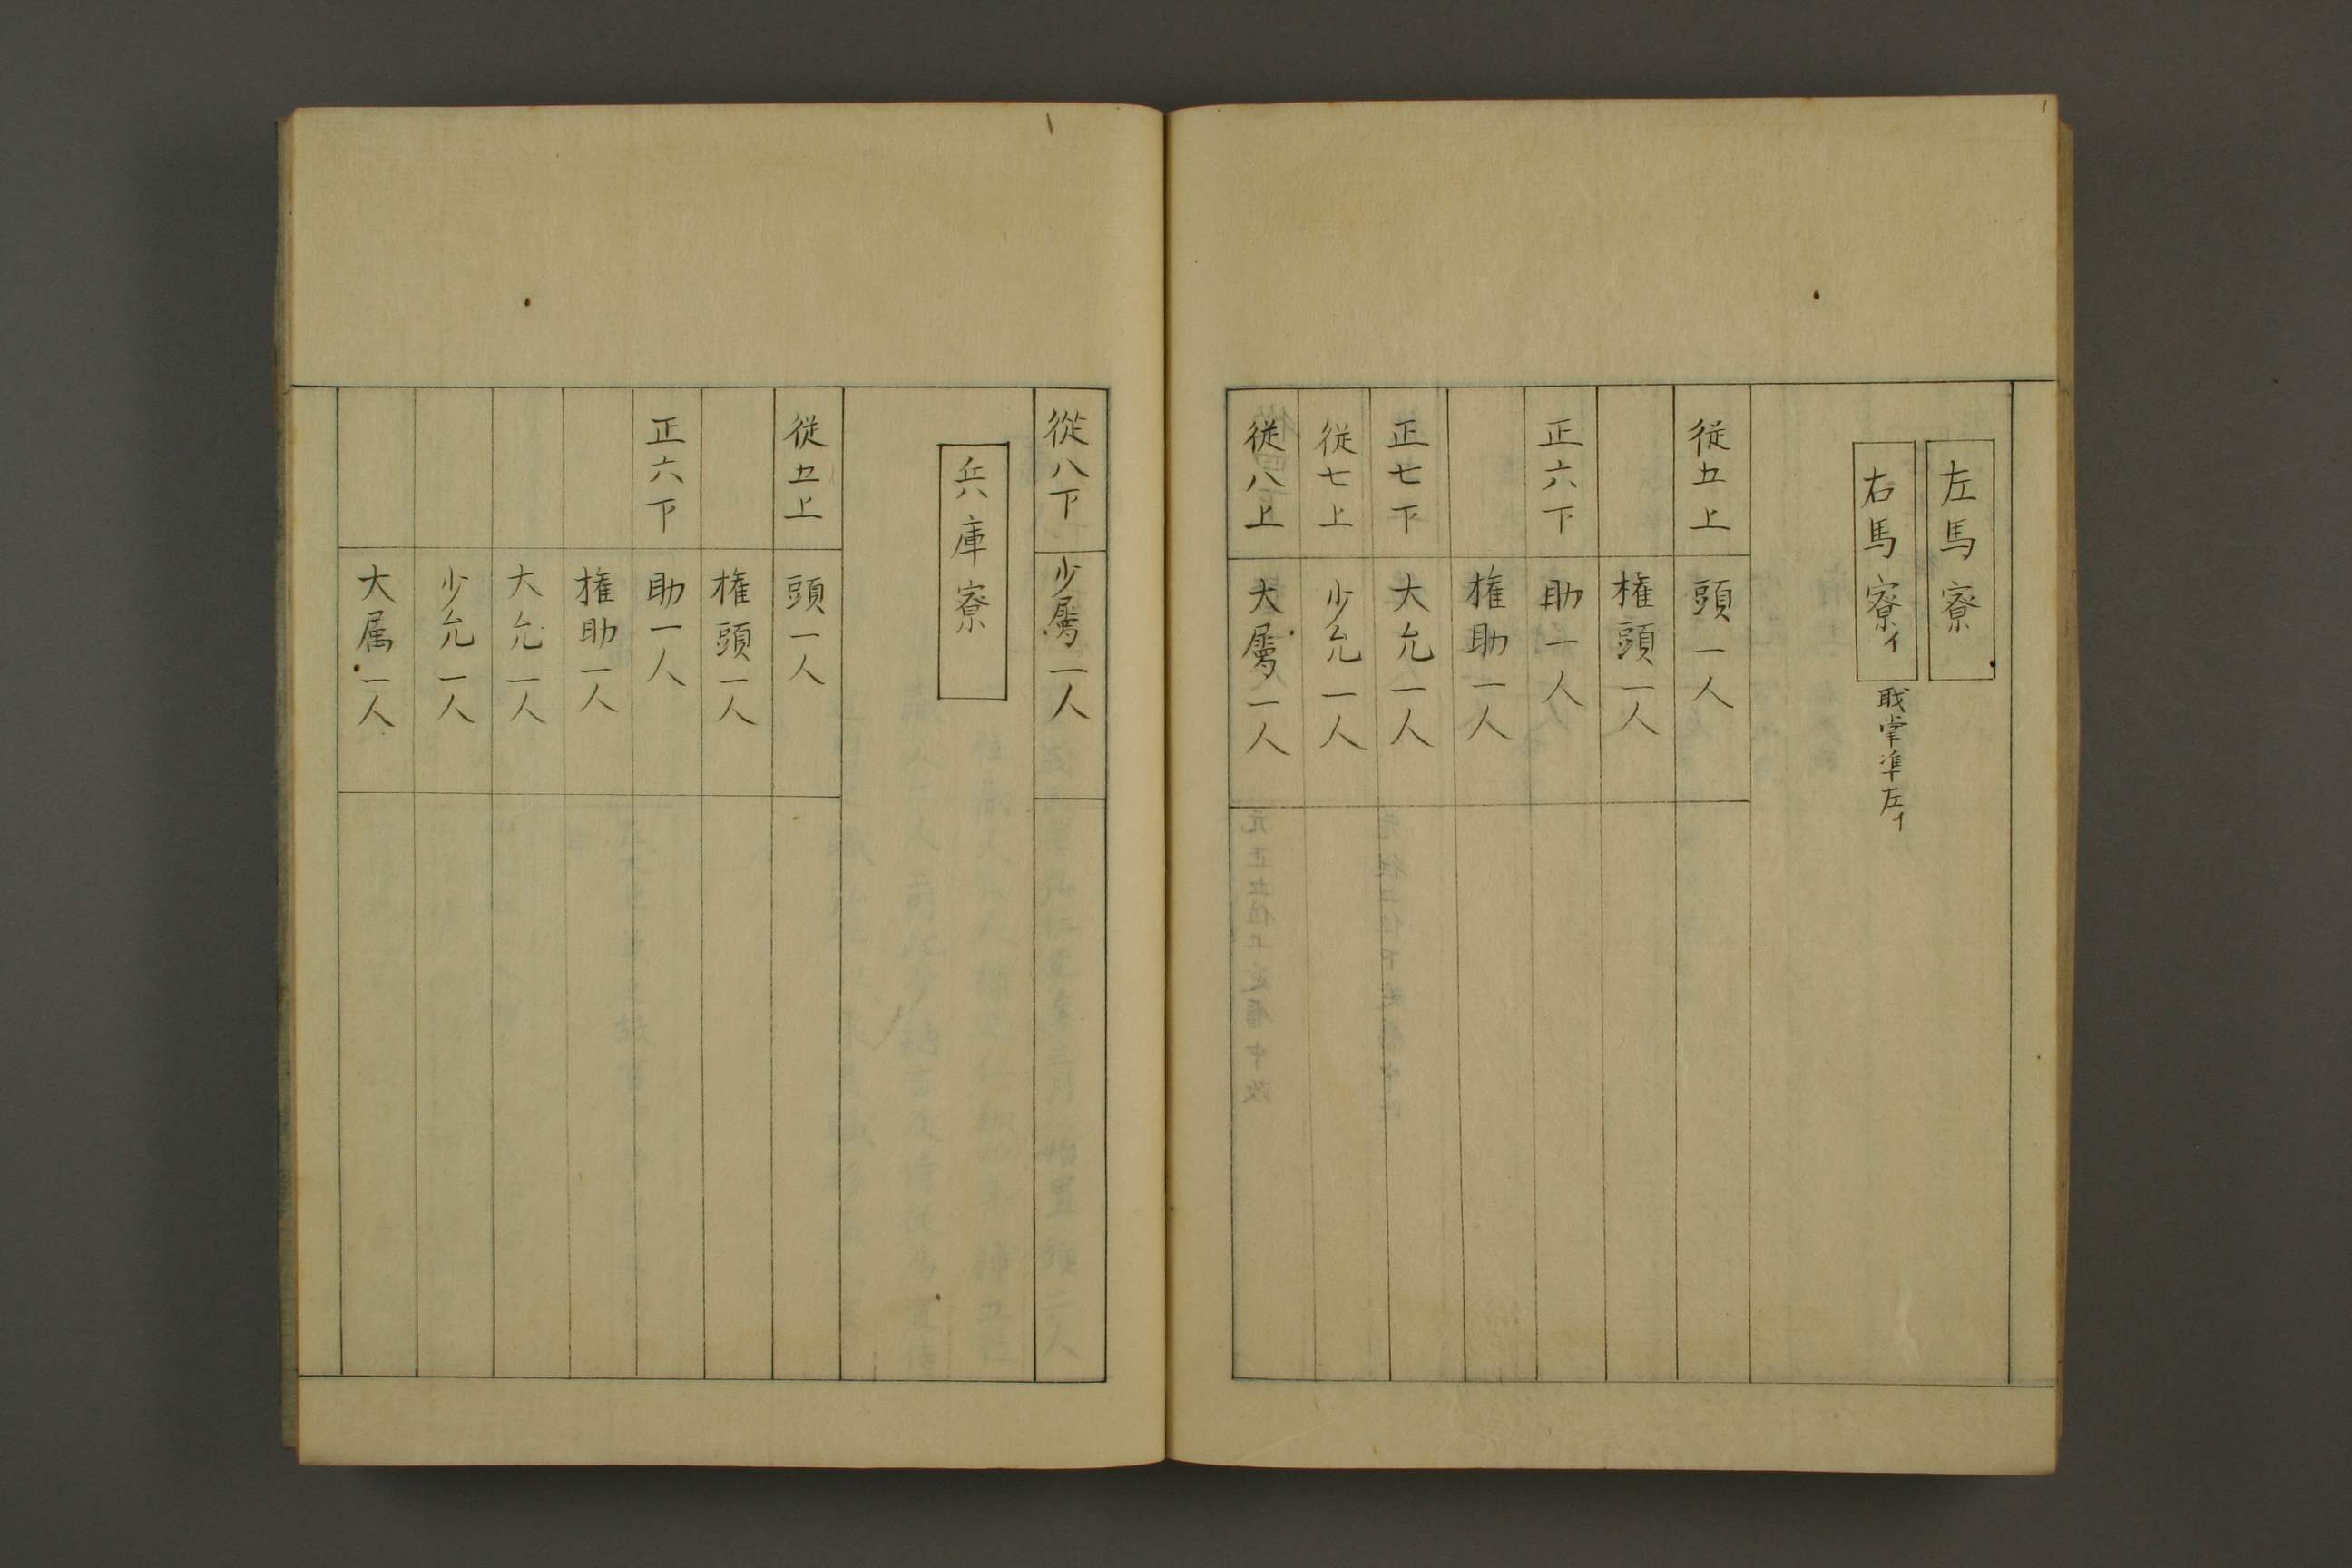 左馬寮
右馬寮イ
戝掌準左イ
従五上 頭一人
権頭一人
正六下 助一人
権助一人
正七下 大允一人
従七上 少允一人
従八上 大属一人
從八下 少属一人
兵庫寮
従五上 頭一人
権頭一人
正六下 助一人
権助一人
大允一人
少允一人
大属一人